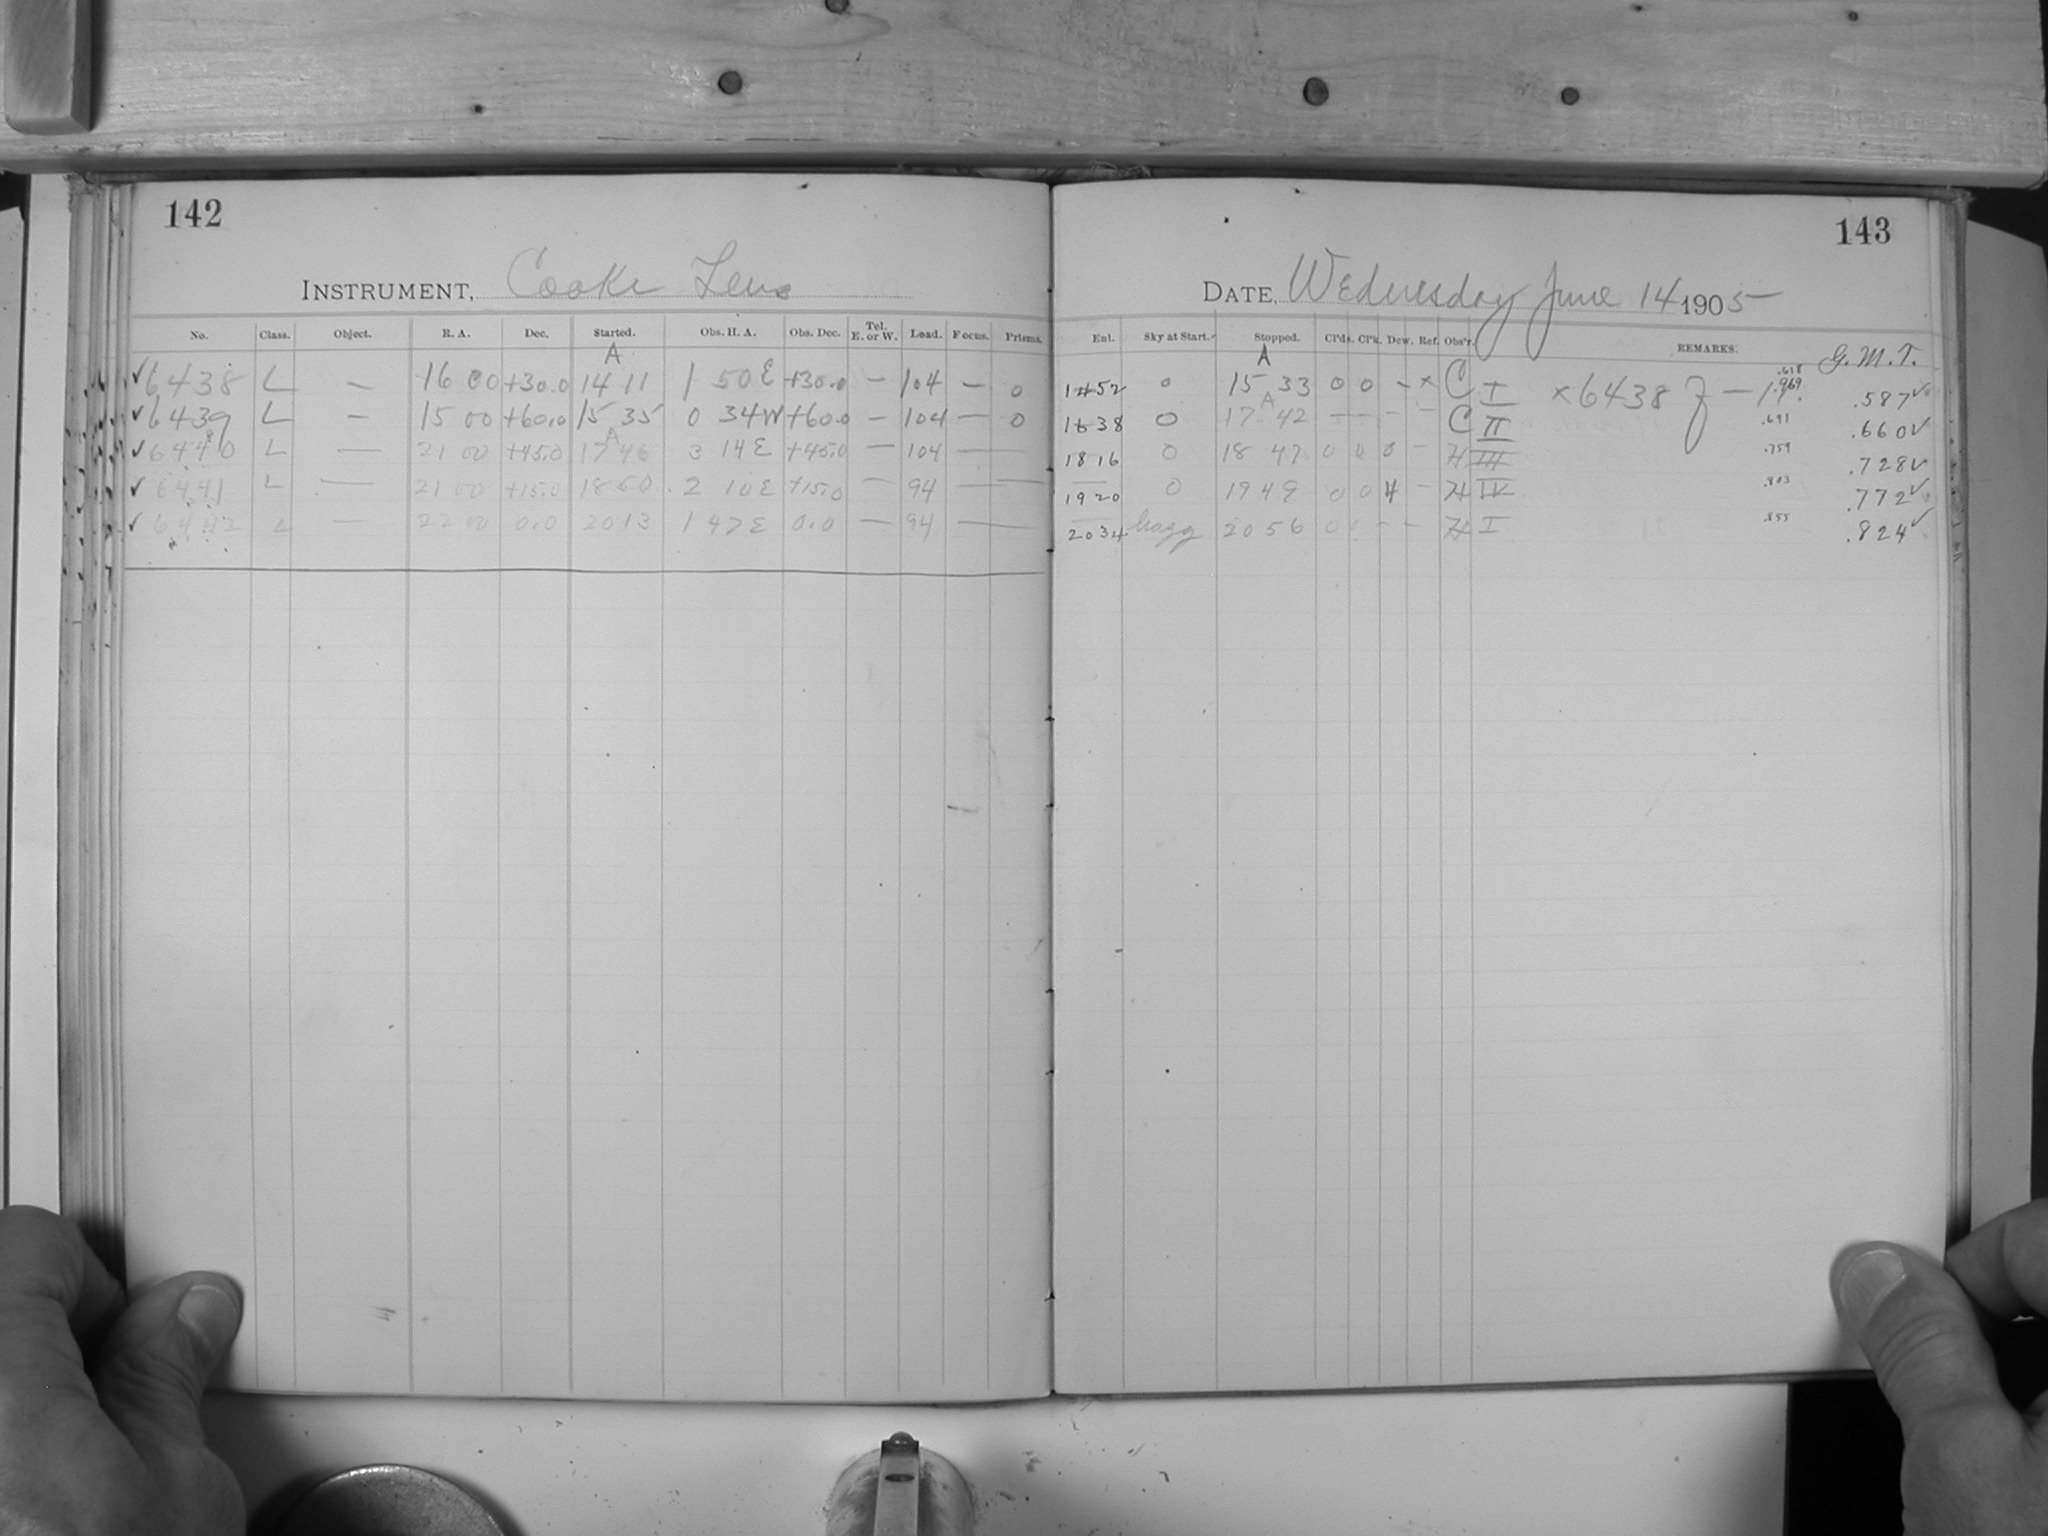 142
INSTRUMENT, Cooke Lens
No. Class. Object. R. A. Dec. Started. Obs. H. A. Obs. Dec. Tel. E. or W. Load. Focus. Prisms.
A
✓6438 L — 16 00 +30.0 14 11 1 50 E +30.0 — 104 — 0
✓6439 L — 15 00 +60.0 15 35 0 34 W +60.0 — 104 — 0
A
✓6440 L — 21 00 +45.0 17 46 3 14 E +45.0 — 104 —
✓6441 L — 21 00 +15.0 18 50 2 10 E +15.0 — 94 — —
✓6442 L — 22 00 0.0 20 13 1 47 E 0.0 — 94 — —
143
DATE, Wednesday June 14 1905
Ent. Sky at Start. Stopped. Cl'ds. Cl'k. Dew. Ref. Obs'r. REMARKS. G.M.T.
A
1452 0 15 33 0 0 – × C I × 6438 — 1.969 .618 .587✓
A
1638 0 17 42 — — – – C II .691 .660✓
1816 0 18 47 0 0 0 – H III .759 .728✓
1920 0 19 49 0 0 4 – H IV .803 .772✓
2034 hazy 20 56 0 – – H I .855 .824✓